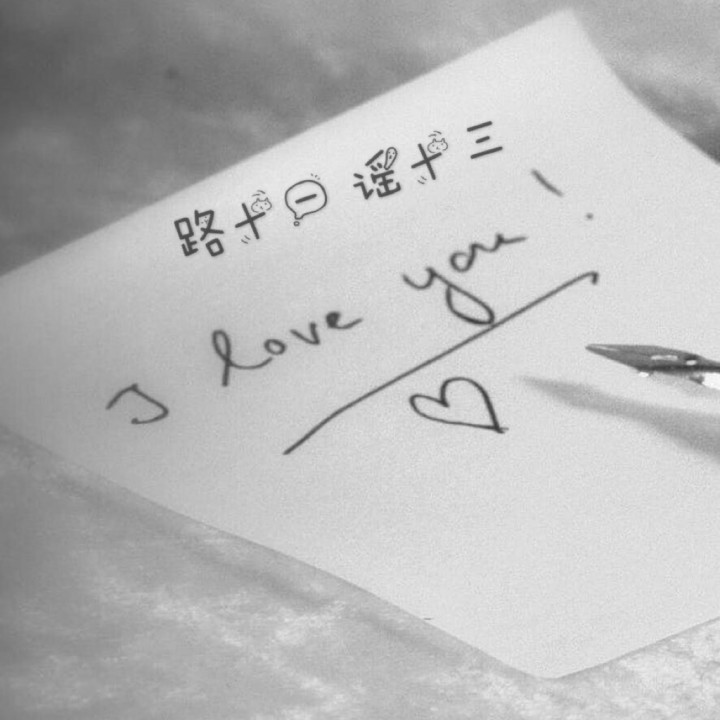 路十一 谣十三
I love you!